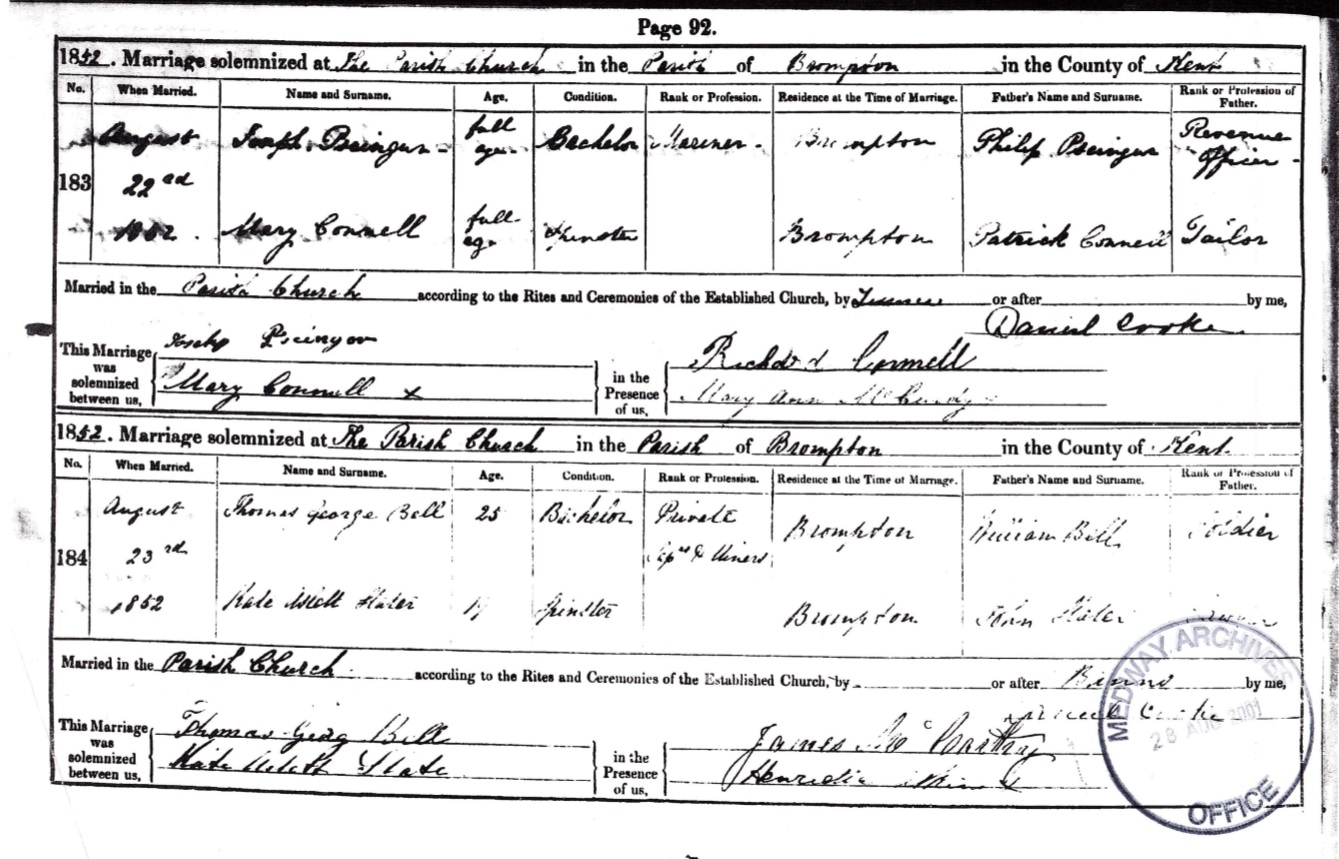 Page 92.
1852. Marriage solemnized at The Parish Church in the Parish of Brompton in the County of Kent
No. When Married. Name and Surname. Age. Condition. Rank or Profession. Residence at the Time of Marriage. Father's Name and Surname. Rank or Profession of Father.
August Joseph full age Bachelor Mariner Brompton Philip Revenue Officer
183 22nd
1852. Mary Connell full age Spinster Brompton Patrick Connell Tailor
Married in the Parish Church according to the Rites and Ceremonies of the Established Church, by or after by me,
Daniel Cooke
This Marriage was solemnized between us, Joseph
Mary Connell x
in the Presence of us, Richard Connell
Mary Ann
1852. Marriage solemnized at The Parish Church in the Parish of Brompton in the County of Kent.
No. When Married. Name and Surname. Age. Condition. Rank or Profession. Residence at the Time of Marriage. Father's Name and Surname. Rank or Profession of Father.
August Thomas George Bell 25 Bachelor Private Brompton William Bell Soldier
184 23rd Miners
1852 Kate Slater Spinster Brompton John Slater
Married in the Parish Church according to the Rites and Ceremonies of the Established Church, by or after Banns by me,
This Marriage was solemnized between us, Thomas Bell
Kate
in the Presence of us, James
MEDWAY ARCHIVES
28 AUG 2001
OFFICE